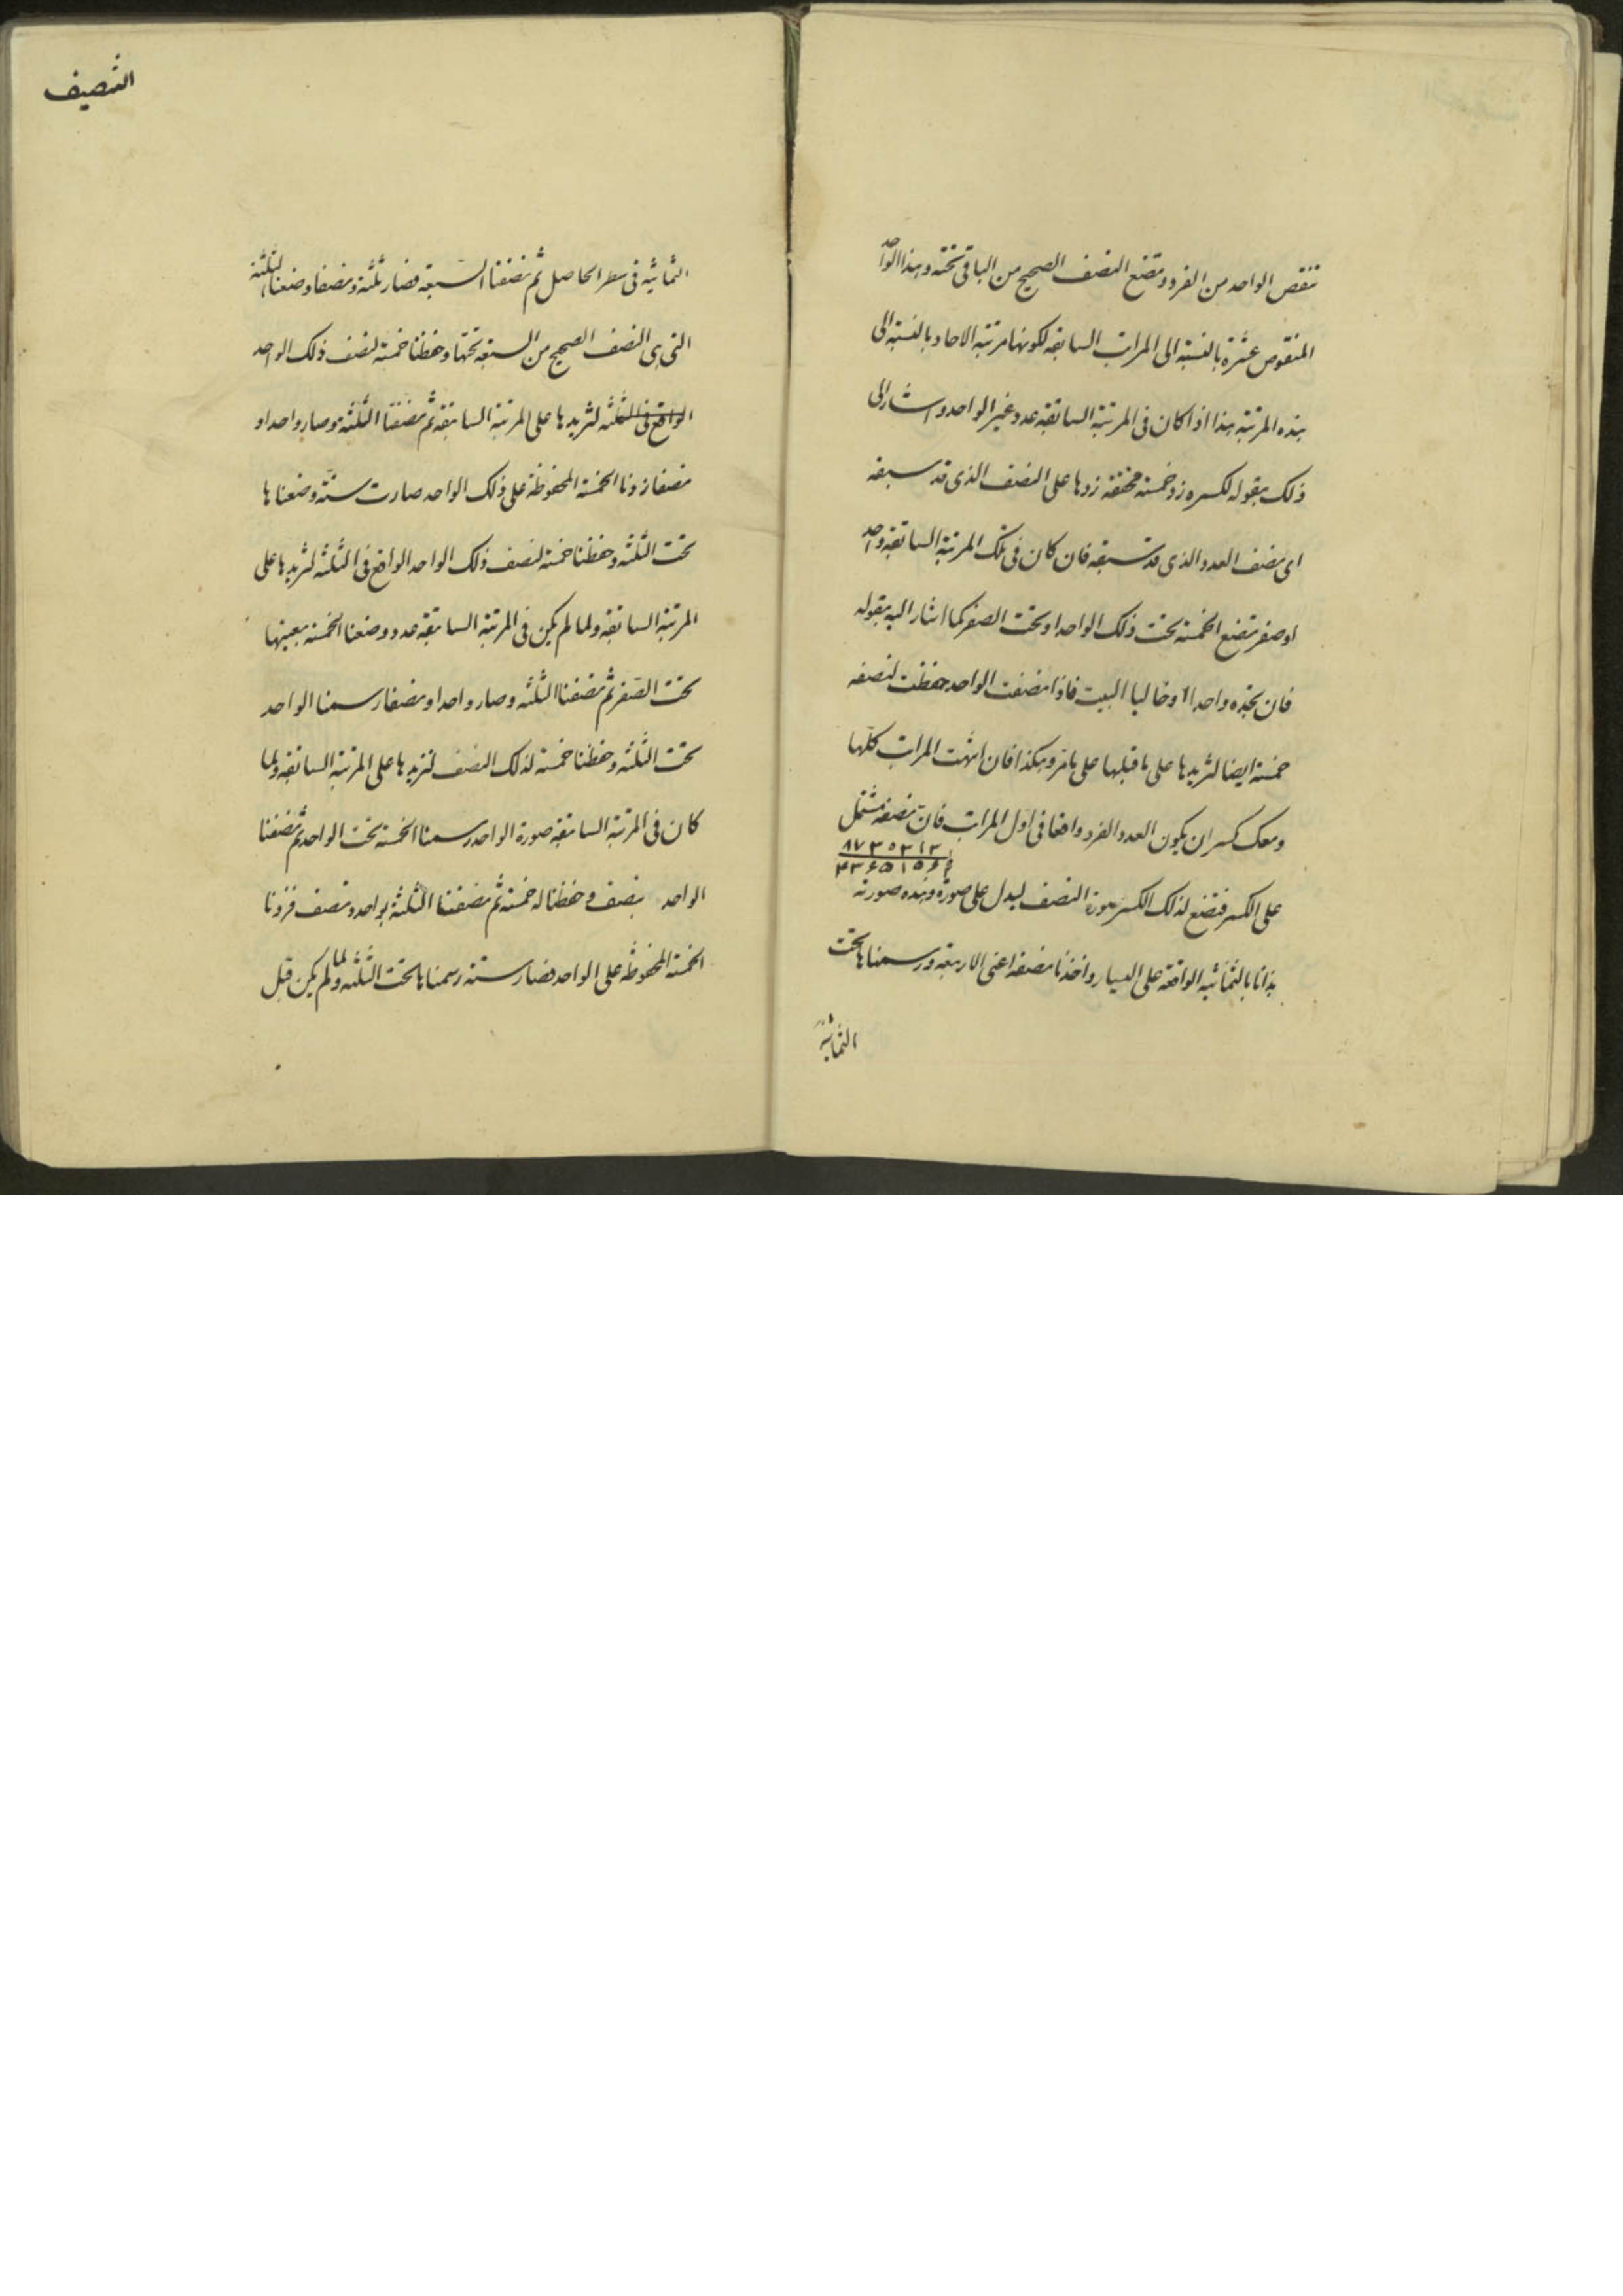 تنقص الواحد من الفرد وتضع النصف الصحيح من الباقى تحته وهذا الواحد
المنقوص عشرة بالنسبة الى المراتب السابقه لكونها مرتبة الاحاد بالنسبة الى
هذه المرتبة هذا اذا كان فى المرتبة السابقه عدد غير الواحد واشار الى
ذلك بقوله لكسره زد خمسة محققه زدها على النصف الذى قد سبقه
اى نصف العدد الذى قد سبقه فان كان فى تلك المرتبة السابقه واحد
او صفر تضع الخمسة تحت ذلك الواحد او تحت الصفر كما اشار اليه بقوله
فان تجده واحدا او خاليا البيت فاذا نصفت الواحد حفظت لنصفه
خمسة ايضا لتزيدها على ما قبلها على ما مر وهكذا فان انتهت المراتب كلها
ومعك كسر ان يكون العدد الفرد واقعا فى اول المراتب فان نصفه مشتمل
۸۷۳۰۳۱۳
۴۳۶۵۱۵۶
على الكسر فتضع لذلك الكسر صورة النصف ليدل على صورة وهذه صورته
بدانا بالثمانية الواقعة على اليسار واخذنا نصفها اعنى الاربعة ورسمناها تحت
الثمانية
التنصيف
الثمانية فى سطر الحاصل ثم نصفنا السبعة فصار ثلثة ونصفا وضعنا الثلثة
التى هى النصف الصحيح من السبعة تحتها وحفظنا خمسة لنصف ذلك الواحد
الواقع فى الثلثة لنزيدها على المرتبة السابقة ثم نصفنا الثلثة وصار واحدا و
نصفا زدنا الخمسة المحفوظة على ذلك الواحد صارت ستة وضعناها
تحت الثلثة وحفظنا خمسة لنصف ذلك الواحد الواقع فى الثلثة لنزيدها على
المرتبة السابقة ولما لم يكن فى المرتبة السابقة عدد وضعنا الخمسة بعينها
تحت الصفر ثم نصفنا الثلثة وصار واحدا ونصفا رسمنا الواحد
تحت الثلثة وحفظنا خمسة لذلك النصف لنزيدها على المرتبة السابقة ولما
كان فى المرتبة السابقة صورة الواحد رسمنا الخمسة تحت الواحد ثم نصفنا
الواحد بنصف وحفظنا له خمسة ثم نصفنا الثلثة بواحد ونصف فزدنا
الخمسة المحفوظة على الواحد فصار ستة رسمناها تحت الثلثة ولما لم يكن قبل